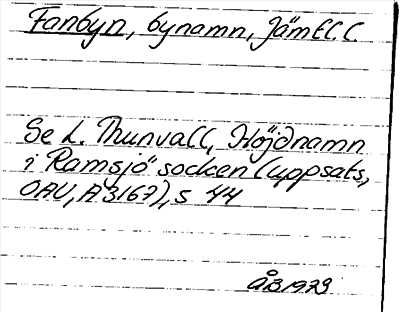 Fanbyn, bynamn, Jämtl.
Se L. Thunvall, Höjdnamn
i Ramsjö socken (uppsats,
OAU, A 3167), s 44
ÅB 1973